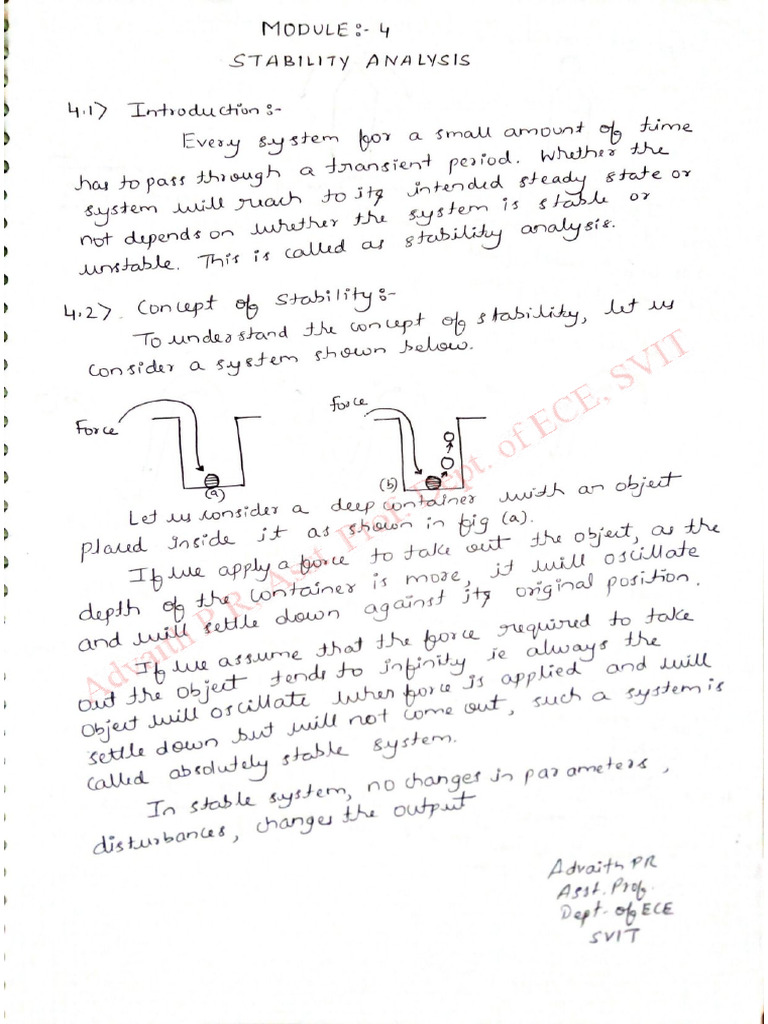 MODULE:- 4
STABILITY ANALYSIS
4.1> Introduction:-
Every system for a small amount of time
has to pass through a transient period. Whether the
system will reach to its intended steady state or
not depends on whether the system is stable or
unstable. This is called as stability analysis.
4.2> Concept of Stability:-
To understand the concept of stability, let us
consider a system shown below.
Force
(a)
force
(b)
Let us consider a deep container with an object
placed inside it as shown in fig (a).
If we apply a force to take out the object, as the
depth of the container is more, it will oscillate
and will settle down against its original position.
If we assume that the force required to take
out the object tends to infinity ie always the
object will oscillate when force is applied and will
settle down but will not come out, such a system is
called absolutely stable system.
In stable system, no changes in parameters,
disturbances, changes the output
Advaith PR
Asst. Prof.
Dept. of ECE
SVIT
Advaith P R, Asst. Prof. Dept. of ECE, SVIT